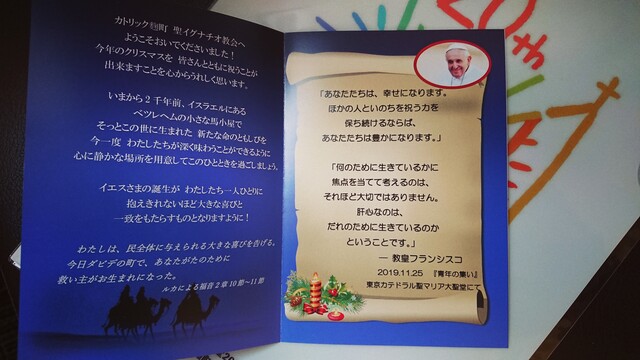 カトリック麹町 聖イグナチオ教会へ
ようこそおいでくださいました！
今年のクリスマスを 皆さんとともに祝うことが
出来ますことを心からうれしく思います。
いまから2千年前、イスラエルにある
ベツレヘムの小さな馬小屋で
そっとこの世に生まれた 新たな命のともしびを
今一度 わたしたちが深く味わうことができるように
心に静かな場所を用意してこのひとときを過ごしましょう。
イエスさまの誕生が わたしたち一人ひとりに
抱えきれないほど大きな喜びと
一致をもたらすものとなりますように！
わたしは、民全体に与えられる大きな喜びを告げる。
今日ダビデの町で、あなたがたのために
救い主がお生まれになった。
ルカによる福音2章10節～11節
「あなたたちは、幸せになります。
ほかの人といのちを祝う力を
保ち続けるならば、
あなたたちは豊かになります。」
「何のために生きているかに
焦点を当てて考えるのは、
それほど大切ではありません。
肝心なのは、
だれのために生きているのか
ということです。」
― 教皇フランシスコ
2019.11.25 『青年の集い』
東京カテドラル聖マリア大聖堂にて
0th